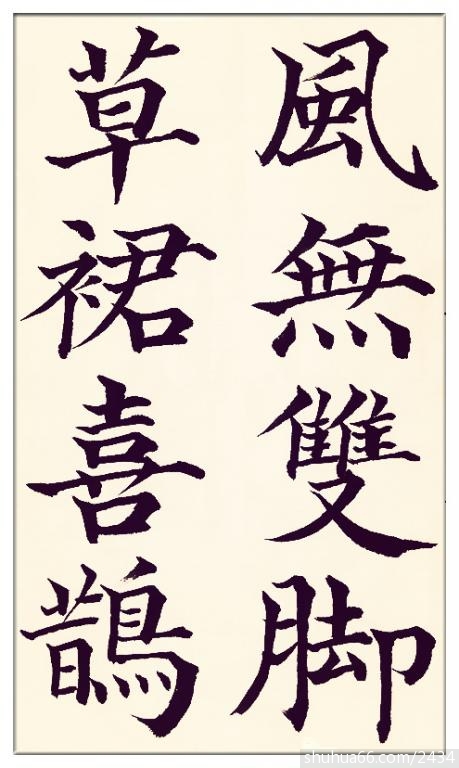 風無雙脚
草裙喜鵲
shuhua66.com/2434